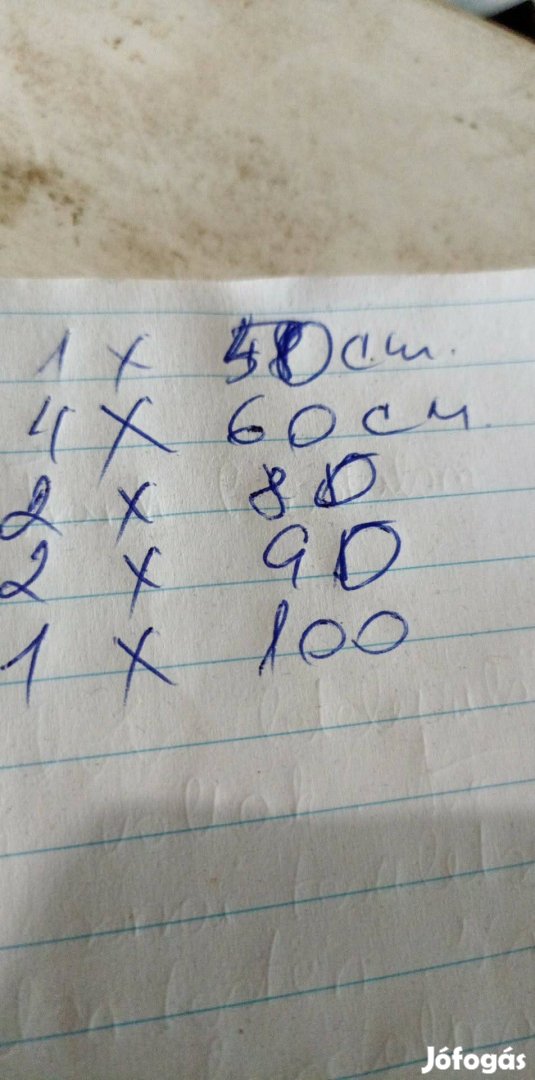 1 x 50 cm.
4 x 60 cm.
2 x 80
2 x 90
1 x 100
Jófogás